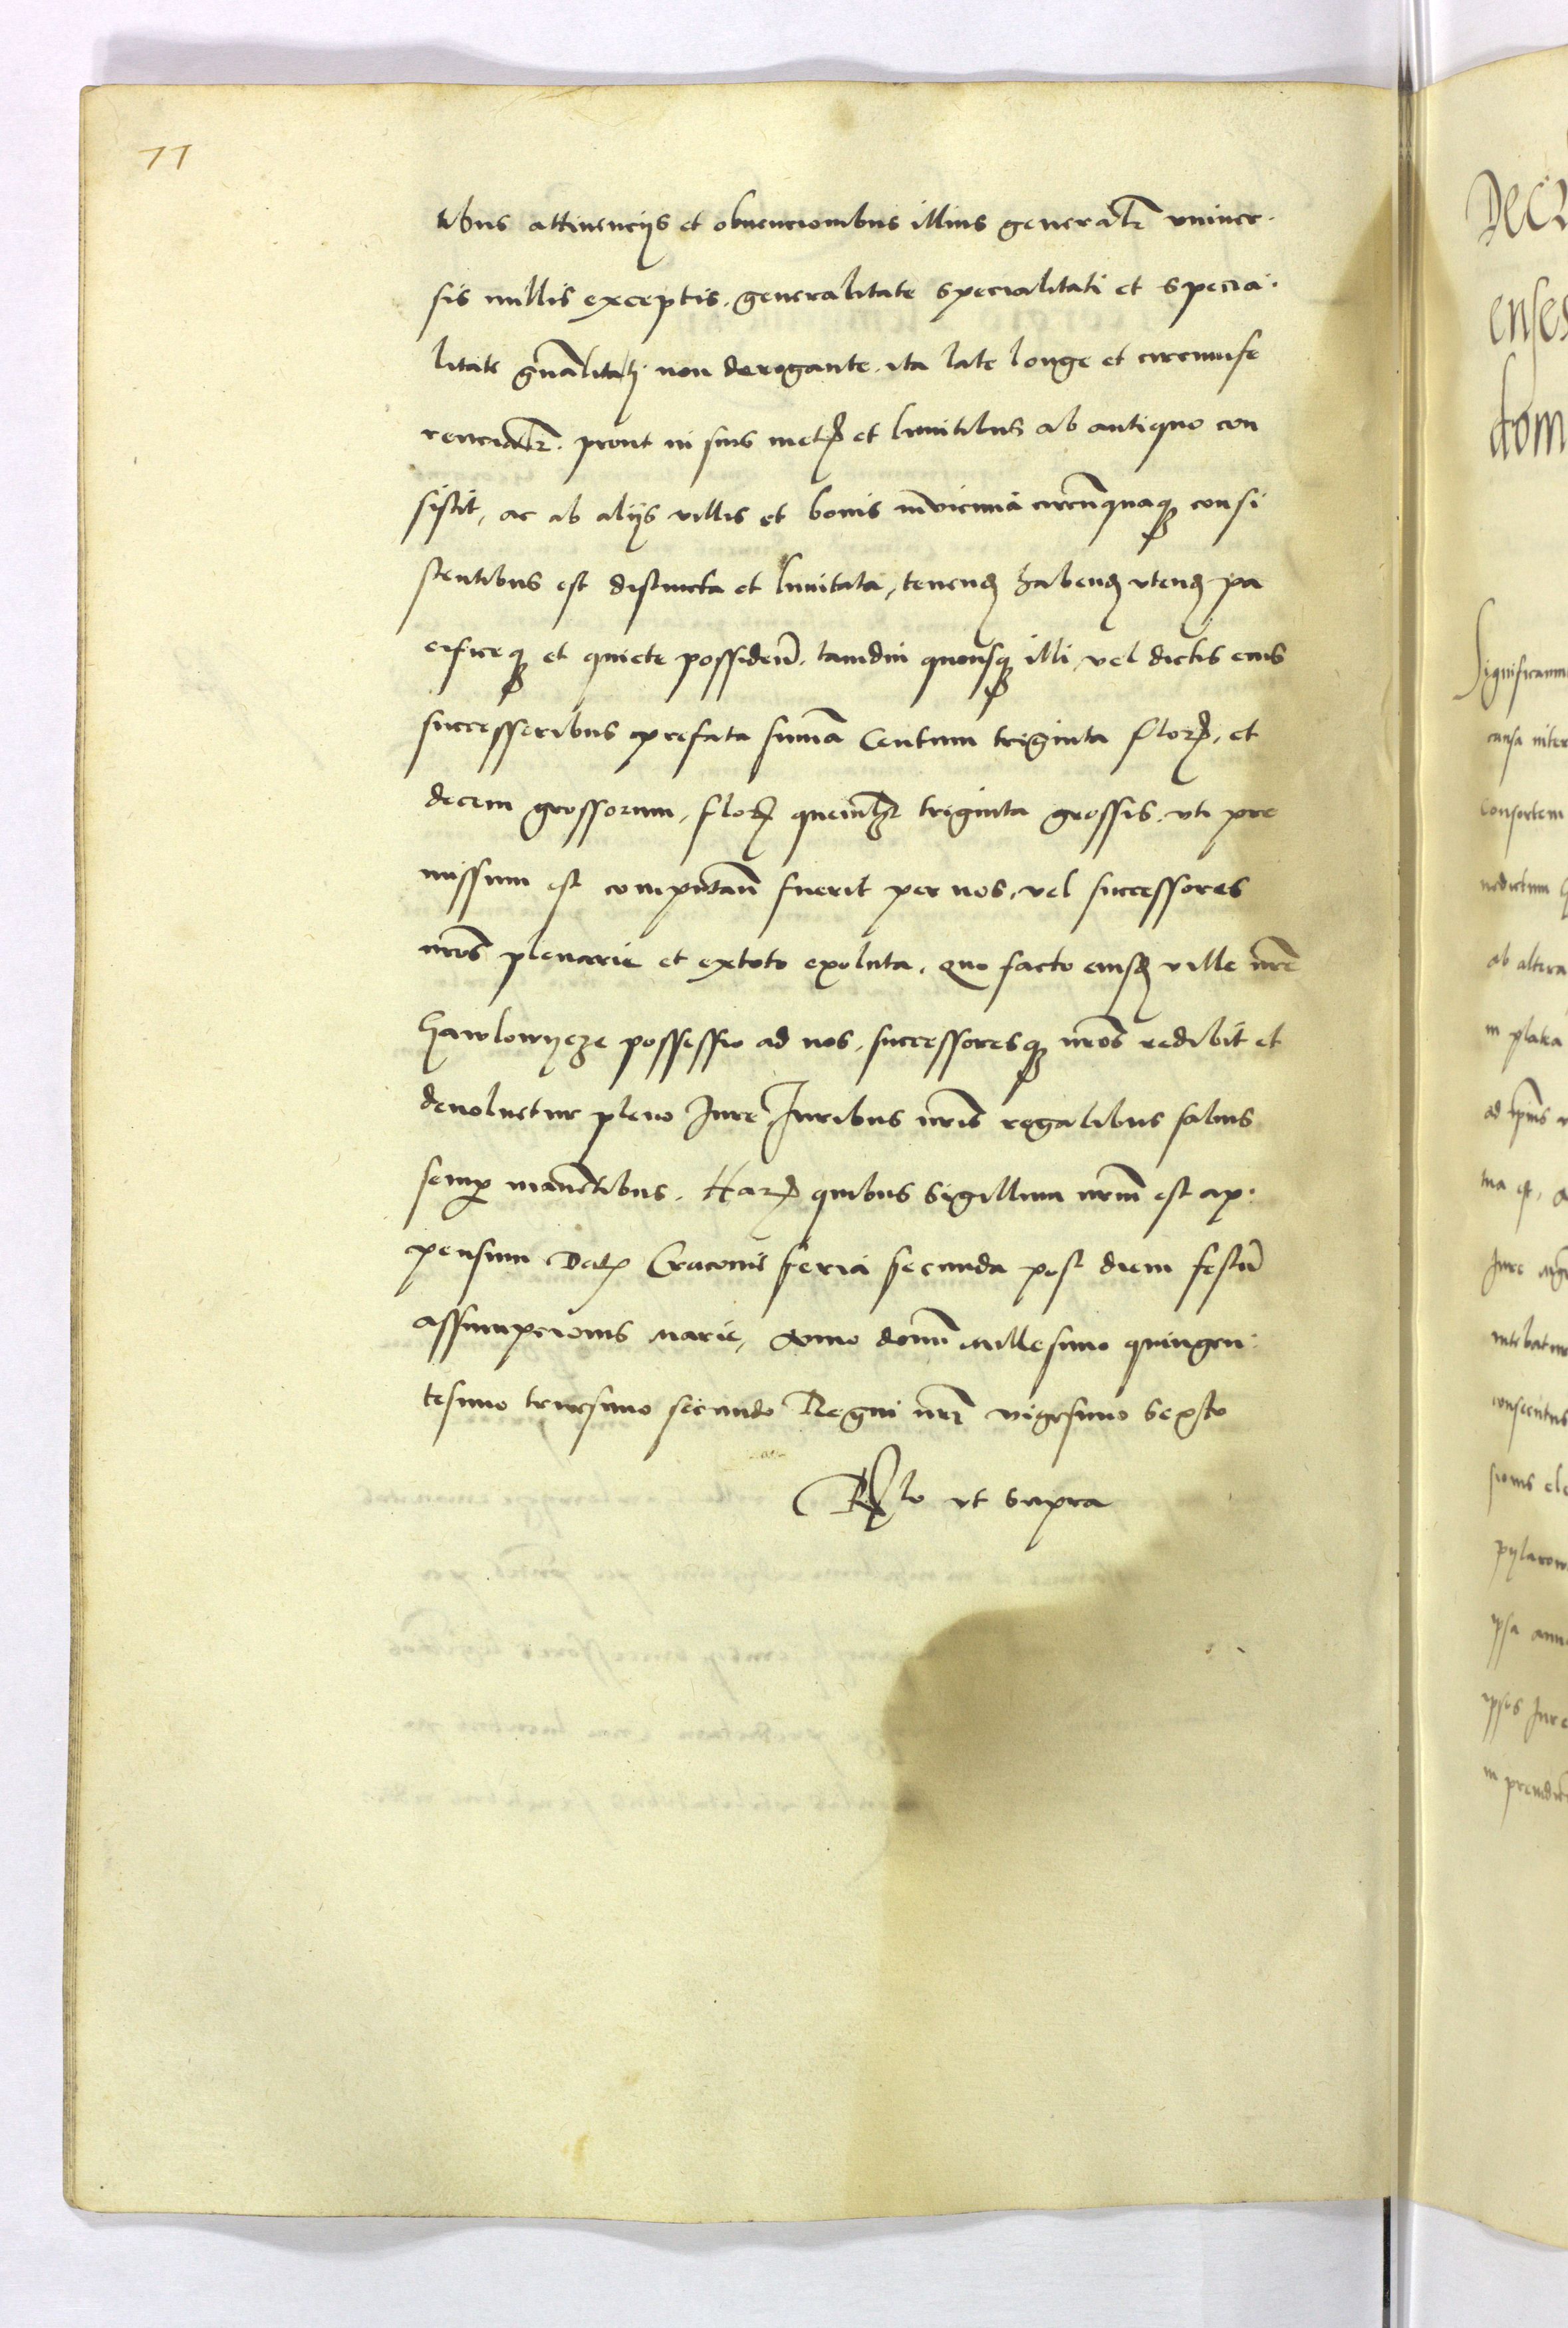 11
tibus attinencijs et obuencionibus illius generalr vniuer·
sis nullis exceptis, generalitate specialitati et specia·
litate gnalitatj non derogante, ita late longe et circumfe
rencialr· prout in suis metis et limitibus ab antiquo con
sistit, ac ab alijs villis et bonis invicinia circuquaq consi
stentibus est distincta et limitata, tenend habend vtend pa
cificeq et quiete possidend, tamdiu quousq illi, vel dictis eius
successoribus prefata suma Centum triginta flor, et
decem grossorum, flor quemlt triginta grossis, vti pre
missum est computan fuerit per nos, vel successores
nros plenarie et extoto exoluta, quo facto eiusd ville nre
hawlowijcze possessio ad nos, successoresq nros redibit et
deuoluetur pleno Jure Juribus nris regalibus saluis
semp manetibus. Har quibus Sigillum nrm est ap·
pensum Dat Cracouie feria secunda post diem festu
assumpcionis Marie, Anno domi millesimo quingen·
tesimo tricesimo secundo Regni nri vigesimo Sexto
Rlo vt supra
DECR
enses
dom
Significamus
causa inter
consortem
ab altera
in platea
Jure
ipsa
ipsos Jure